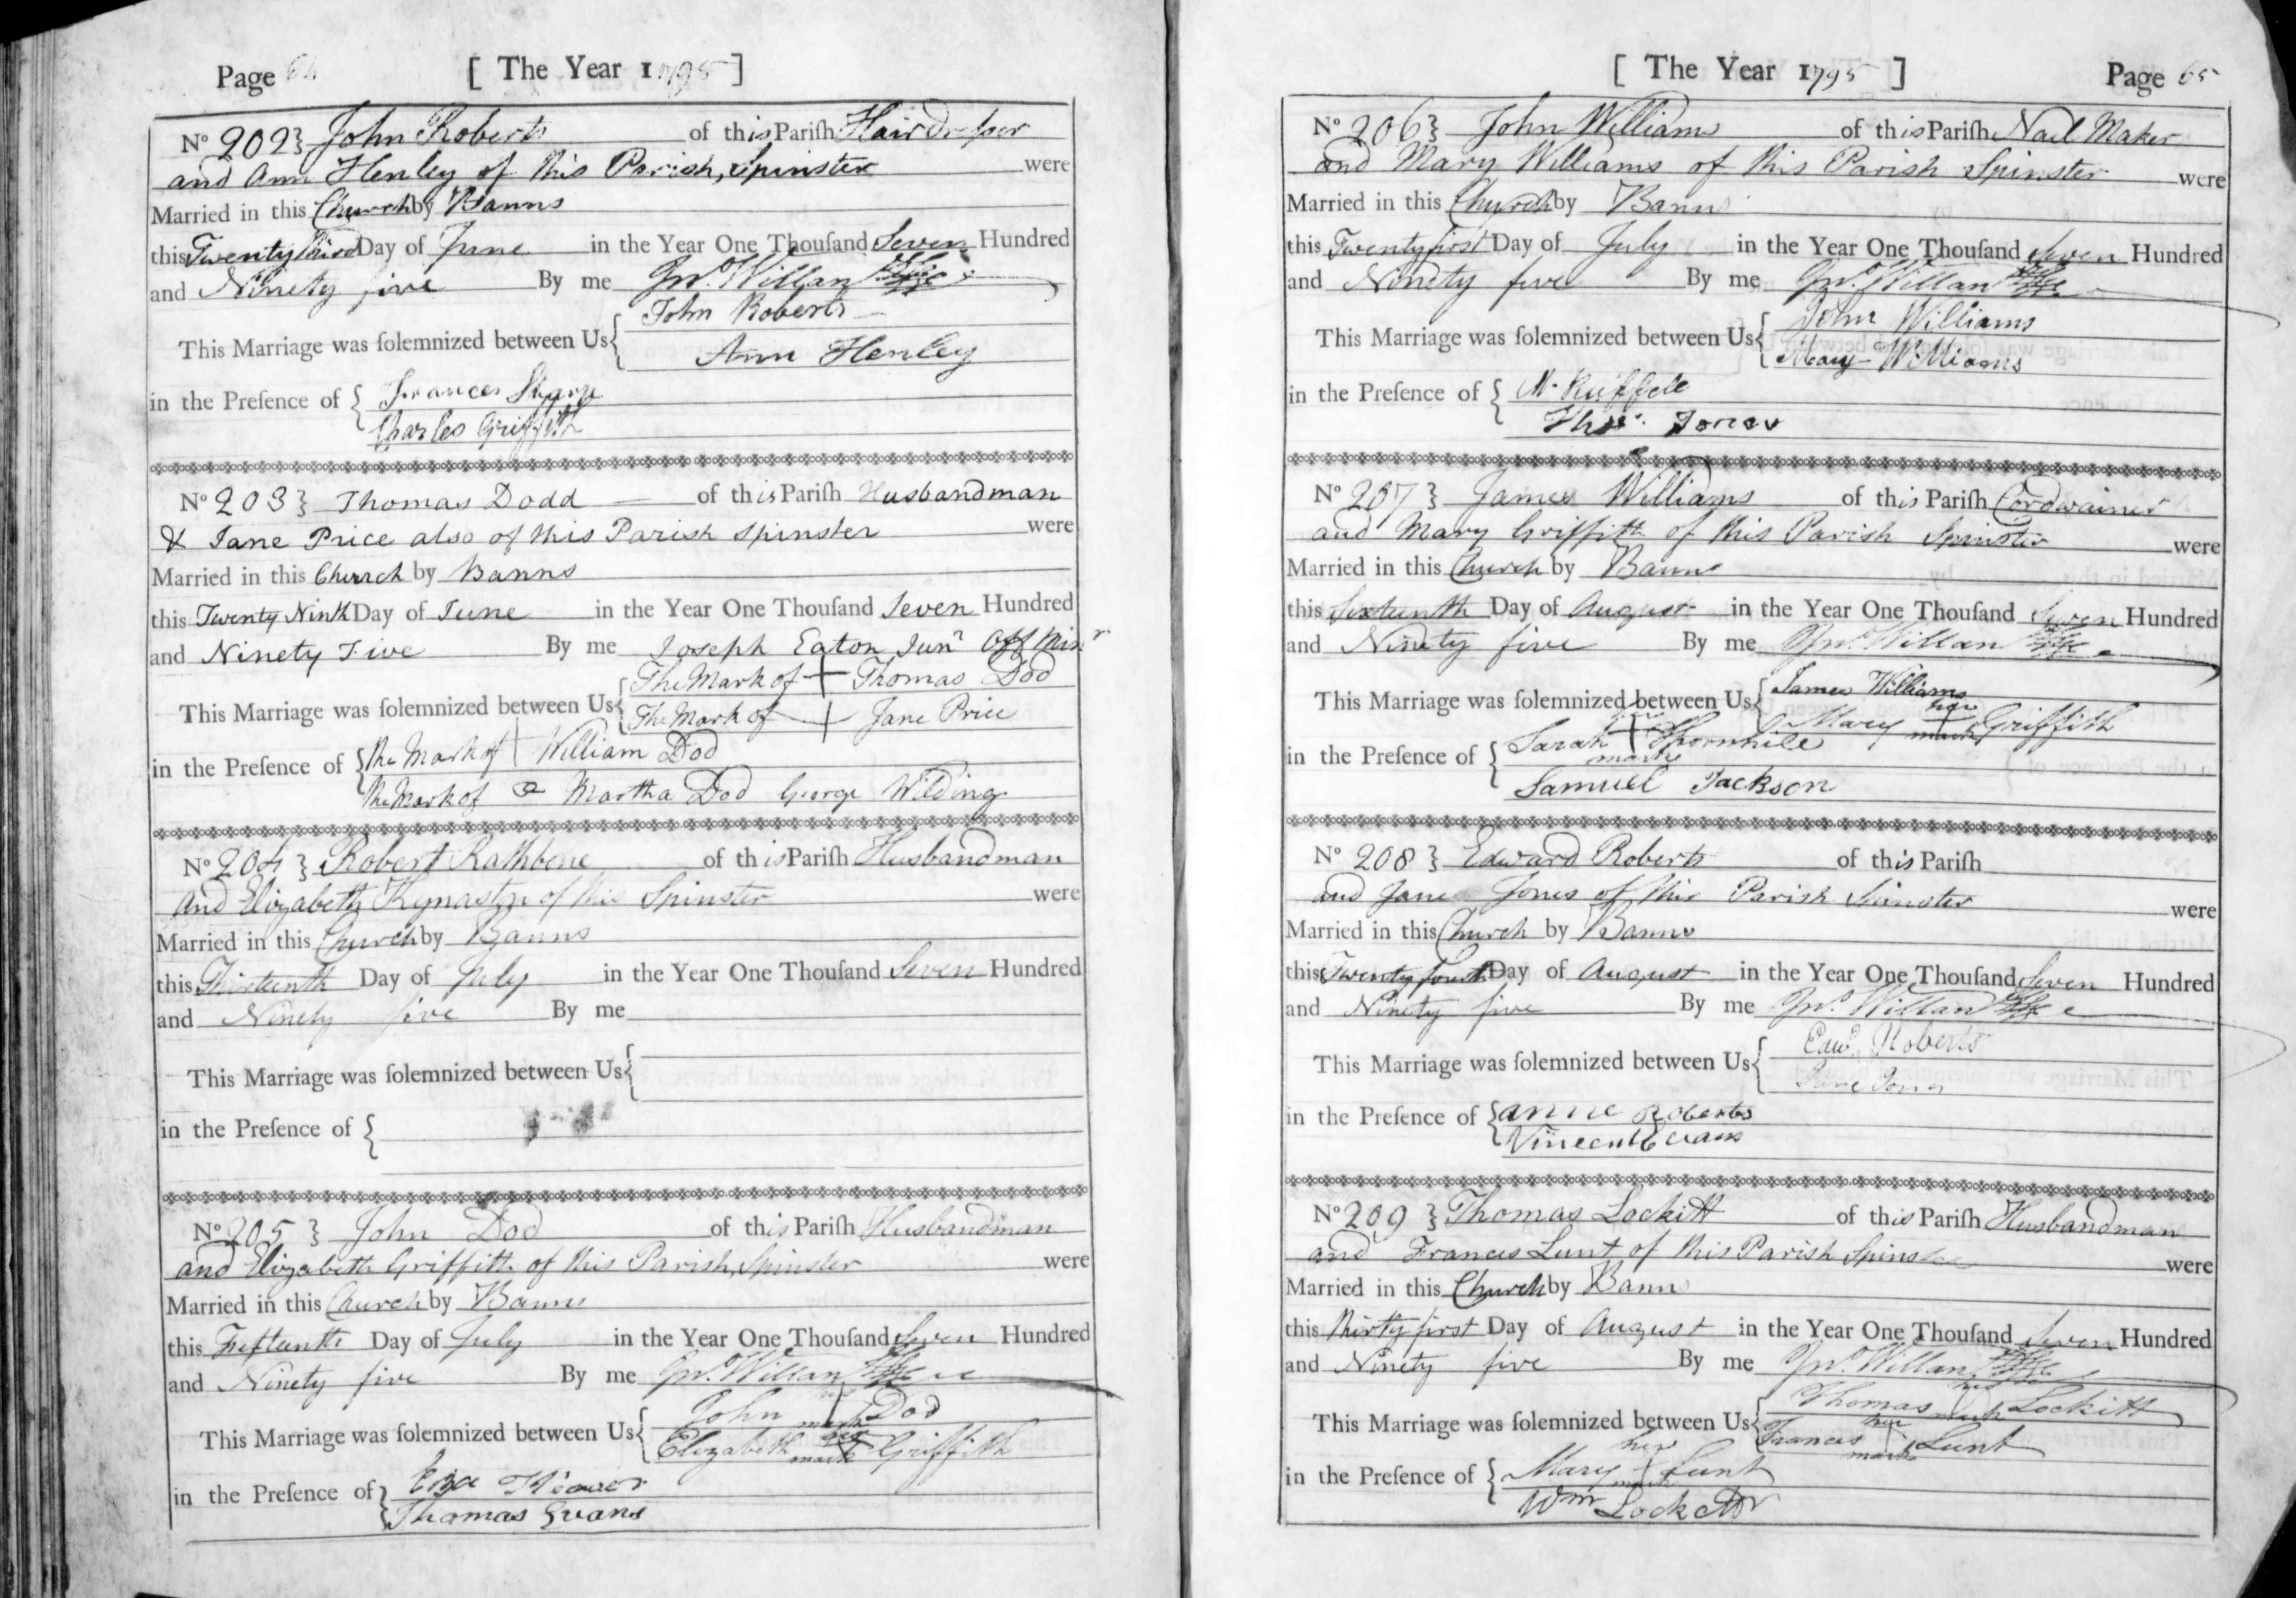 Page 64 [ The Year 1795 ]
No 202 } John Roberts of this Parish Hair Dresser
and Ann Henley of this Parish, Spinster were
Married in this Church by Banns
this Twenty Third Day of June in the Year One Thousand Seven Hundred
and Ninety five By me Jno. Willan
This Marriage was solemnized between Us { John Roberts
Ann Henley
in the Presence of { Frances
Charles Griffith
No 203 } Thomas Dodd of this Parish Husbandman
& Jane Price also of this Parish spinster were
Married in this Church by Banns
this Twenty Ninth Day of June in the Year One Thousand Seven Hundred
and Ninety Five By me Joseph Eaton Junr Off Minr
This Marriage was solemnized between Us { The Mark of + Thomas Dod
The Mark of + Jane Price
in the Presence of { The Mark of William Dod
The Mark of Martha Dod George Wilding
No 204 } Robert Rathbone of this Parish Husbandman
and Elizabeth Kynaston of this Spinster were
Married in this Church by Banns
this Thirteenth Day of July in the Year One Thousand Seven Hundred
and Ninety five By me
This Marriage was solemnized between Us {
in the Presence of {
No 205 } John Dod of this Parish Husbandman
and Elizabeth Griffith of this Parish, Spinster were
Married in this Church by Banns
this Fifteenth Day of July in the Year One Thousand Seven Hundred
and Ninety five By me Jno. Willan
This Marriage was solemnized between Us { John mark Dod
Elizabeth her mark Griffith
in the Presence of }
Thomas Evans
[ The Year 1795 ] Page 65
No 206 } John Williams of this Parish Nail Maker
and Mary Williams of this Parish Spinster were
Married in this Church by Banns
this Twenty first Day of July in the Year One Thousand Seven Hundred
and Ninety five By me Jno. Willan
This Marriage was solemnized between Us { John Williams
Mary Williams
in the Presence of { M. Ruffele
Thos. Jones
No 207 } James Williams of this Parish Cordwainer
and Mary Griffith of this Parish Spinster were
Married in this Church by Banns
this Sixteenth Day of August in the Year One Thousand Seven Hundred
and Ninety five By me Jno. Willan
This Marriage was solemnized between Us { James Williams
Mary her mark Griffith
in the Presence of { Sarah her mark Thornhile
Samuel Jackson
No 208 } Edward Roberts of this Parish
and Jane Jones of this Parish Spinster were
Married in this Church by Banns
this Twenty fourth Day of August in the Year One Thousand Seven Hundred
and Ninety five By me Jno. Willan
This Marriage was solemnized between Us { Edwd. Roberts
Jane Jones
in the Presence of { Anne Roberts
Vincent Evans
No 209 } Thomas Lockitt of this Parish Husbandman
and Frances Lunt of this Parish Spinster were
Married in this Church by Banns
this thirty first Day of August in the Year One Thousand Seven Hundred
and Ninety five By me Jno. Willan
This Marriage was solemnized between Us { Thomas his mark Lockitt
Frances her mark Lunt
in the Presence of { Mary her mark Lunt
Wm